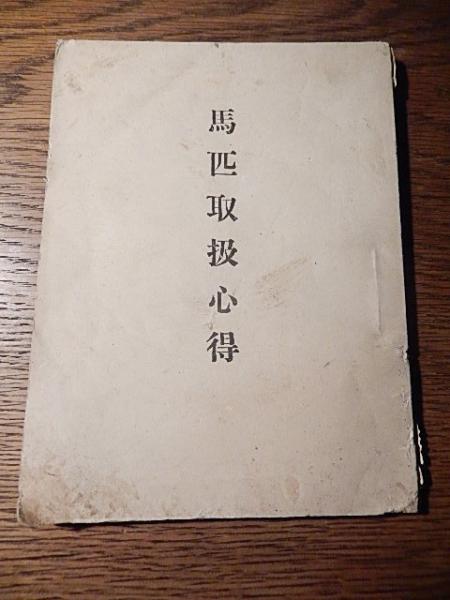 馬匹取扱心得